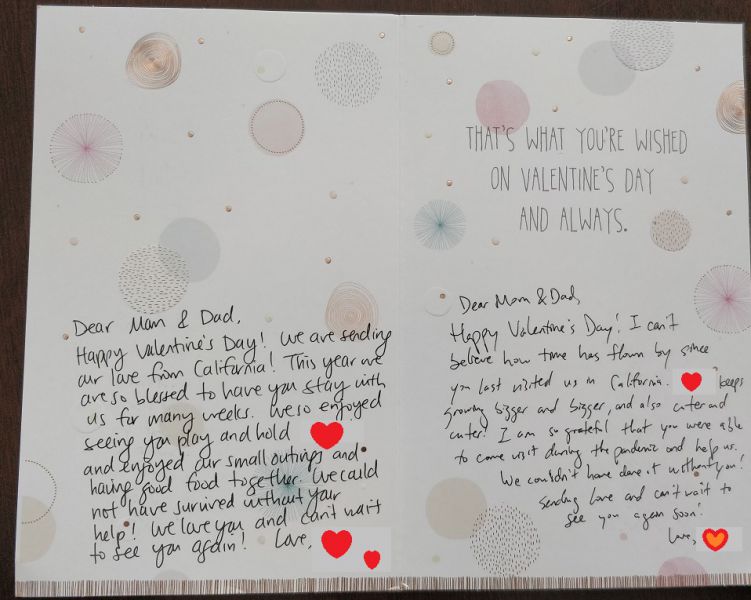 Dear Mom & Dad,
Happy Valentine's Day! We are sending
our love from California! This year we
are so blessed to have you stay with
us for many weeks. We so enjoyed
seeing you play and hold
and enjoyed our small outings and
having good food together. We could
not have survived without your
help! We love you and can't wait
to see you again! Love,
THAT'S WHAT YOU'RE WISHED
ON VALENTINE'S DAY
AND ALWAYS.
Dear Mom & Dad,
Happy Valentine's Day! I can't
believe how time has flown by since
you last visited us in California. keeps
growing bigger and bigger, and also cuter and
cuter! I am so grateful that you were able
to come visit during the pandemic and help us.
We couldn't have done it without you!
Sending love and can't wait to
see you again soon!
Love,